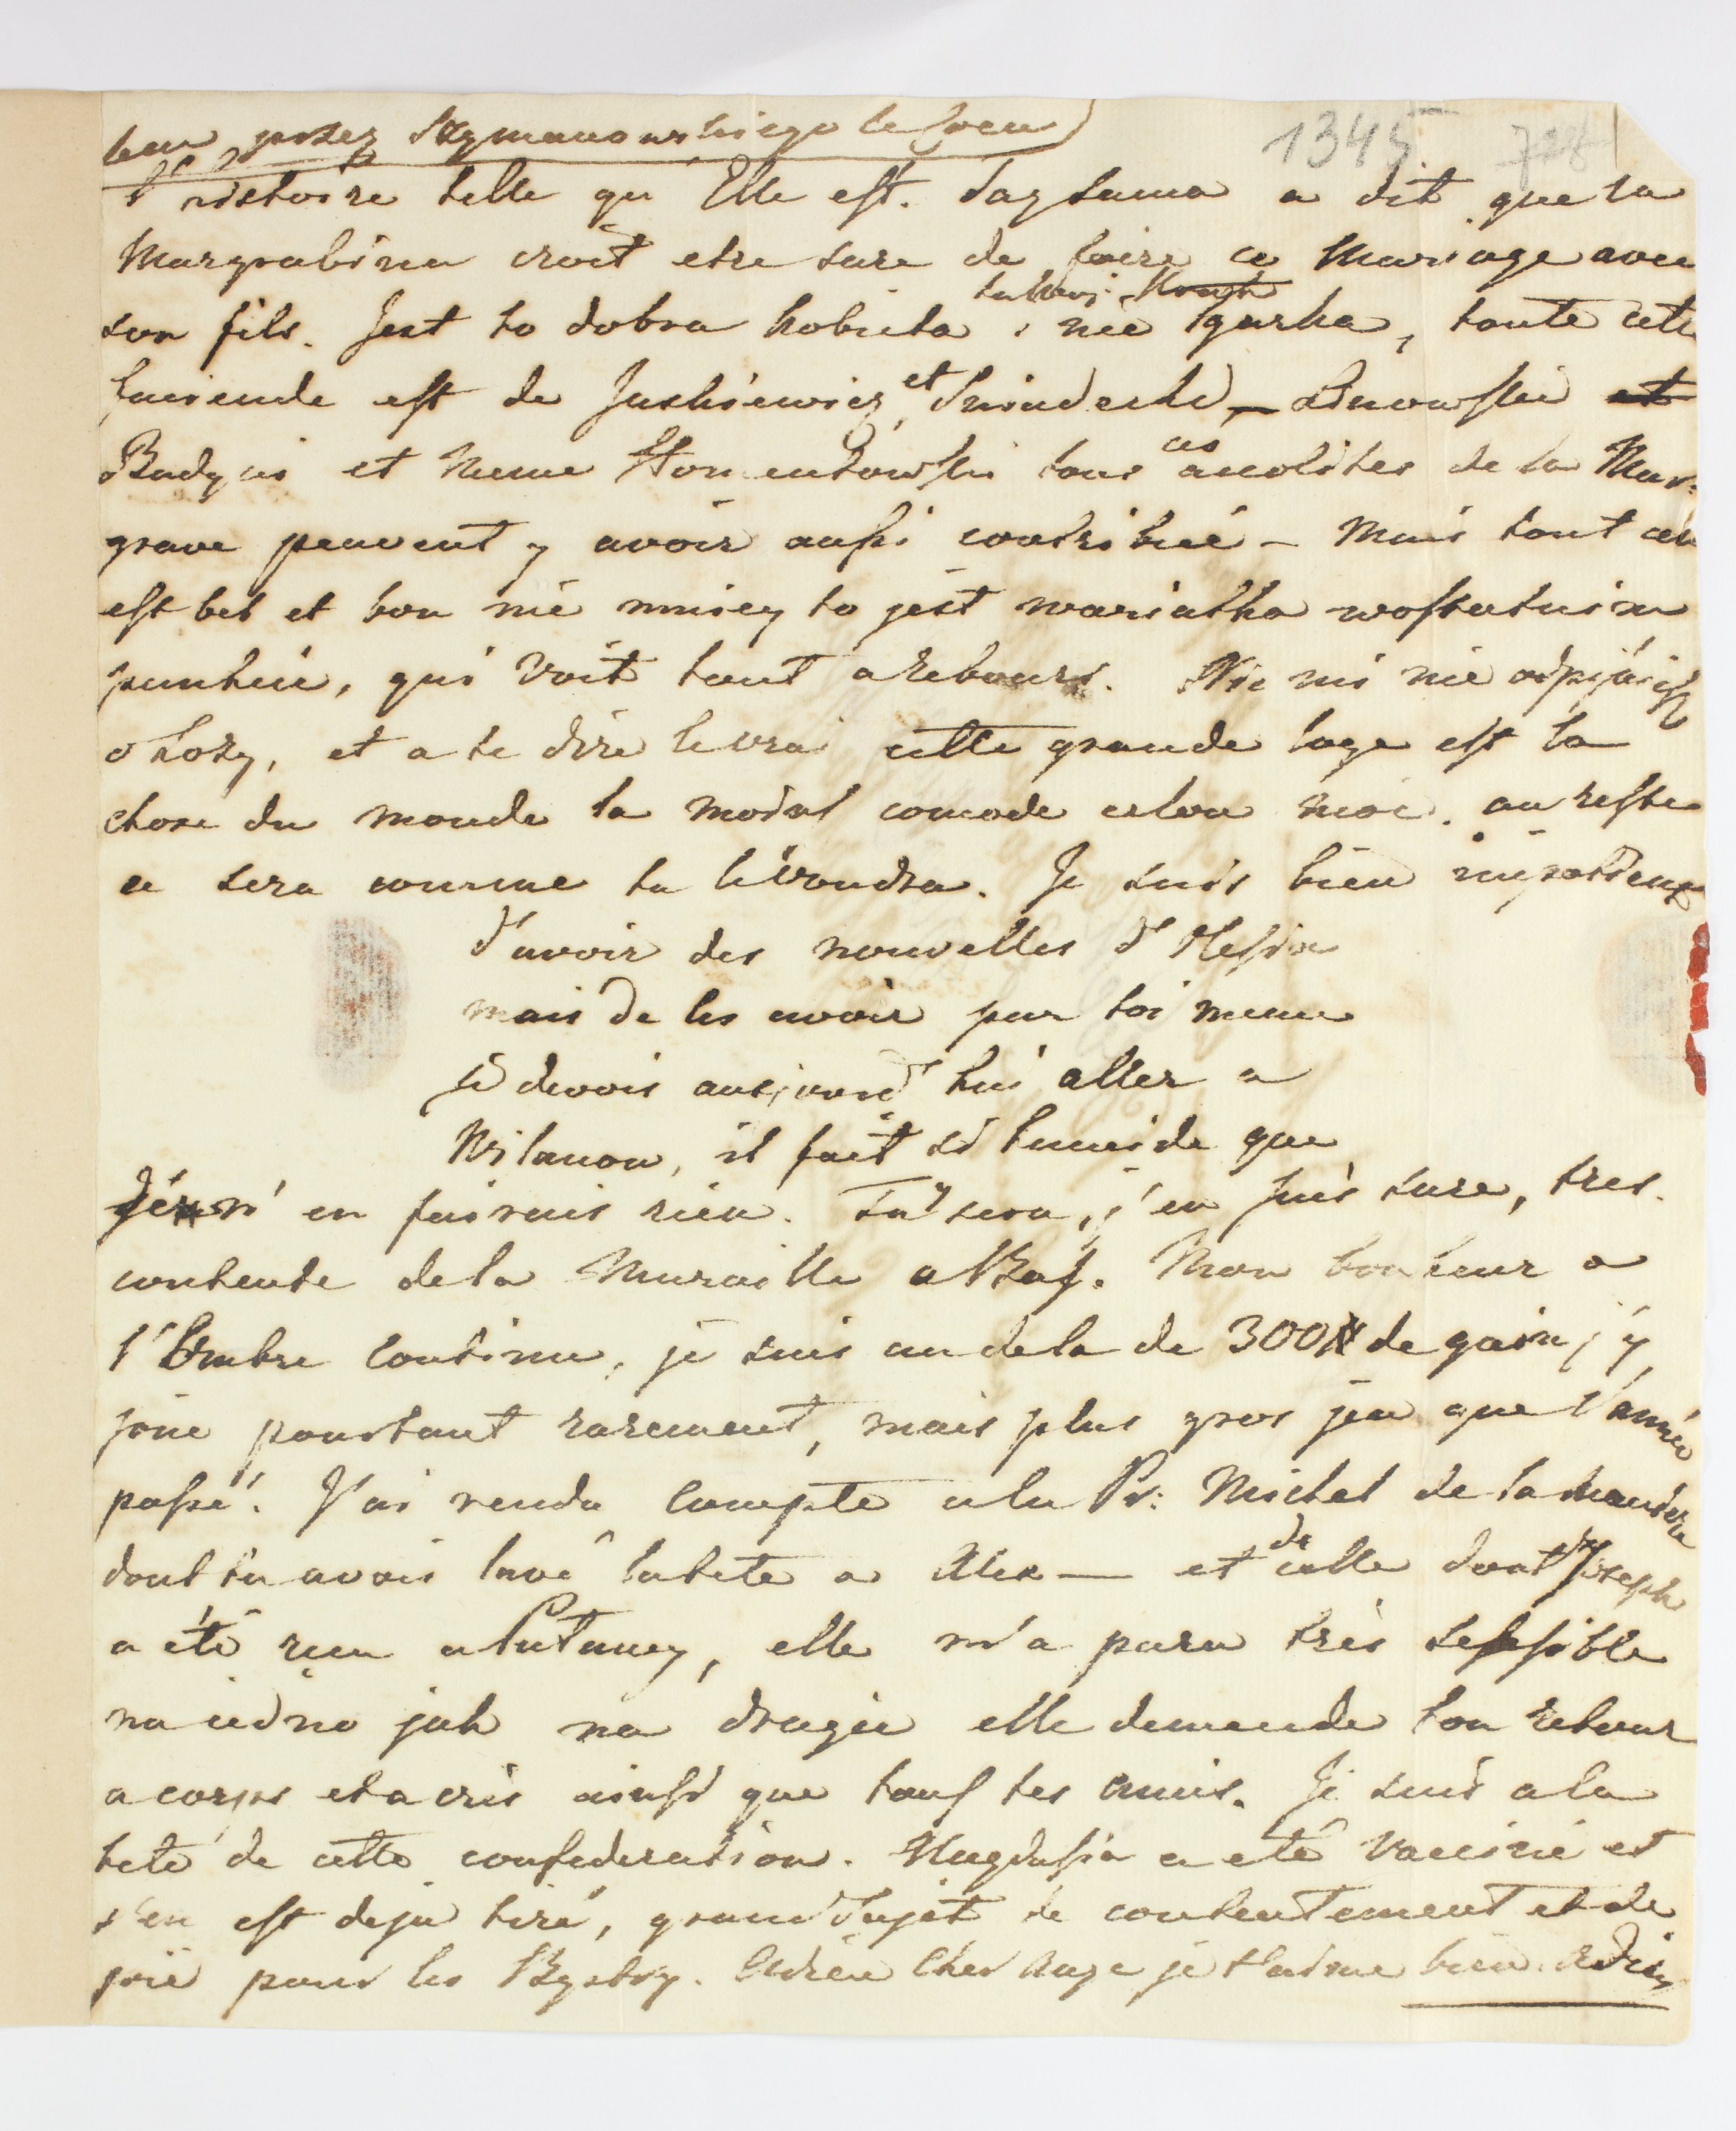 1345
ten przez Szymanowskiego le soeur
l'histoire telle qu'Elle est. Sagtuma a dit que la
Margrabina croit etre sure de faire ce Mariage avec
son fils. Jest to dobra kobieta i nie Ygarka, toute cette
faciende est de Juskiewicz et Sniadecki – Linowski
Badyni et meme Homentowski tous ces acolites de la Mar:
grave peuvent y avoir aussi contribué – Mais tout cela
est bel et bon nie mniey to jest wariatka w ostatnim
punkcie, qui voit tout a rebours. Nic mi nie odpisujesz
o Lozy, et a te dire le vrai cette grande loge est la
chose du monde la moins comode celon moi. au reste
ce sera comme tu le voudra. Je suis bien impatient
d'avoir des nouvelles d'
mais de les avoir par toi meme
je devois aujourd'hui aller a
Wilanow, il fait si humide que
je n'en fairais rien. Tu sera, j'en suis sure, tres
contente de la Muraille a Mon bonheur a
l'Ombre continue, je suis au dela de 300 # de gain j'y
joue pourtant rarement, mais plus gros jeu que l'année
passé. J'ai rendu compte a la Pr: Michel de la maniere
dont tu avois lavé la tete a Alex — et de celle dont Joseph
a été reçu a Putawy, elle m'a paru très sensible
na iedno jak na drugie elle demande ton retour
a corps et a cris ainsi que tous tes amis. Je suis a la
tete de cette confederation. Magdusia a eté Vacciné et
s'en est deja tiré, grand sujet de contentement et de
joie pour les Bystry. Adieu Cher Ange je t'aime bien. Adieu